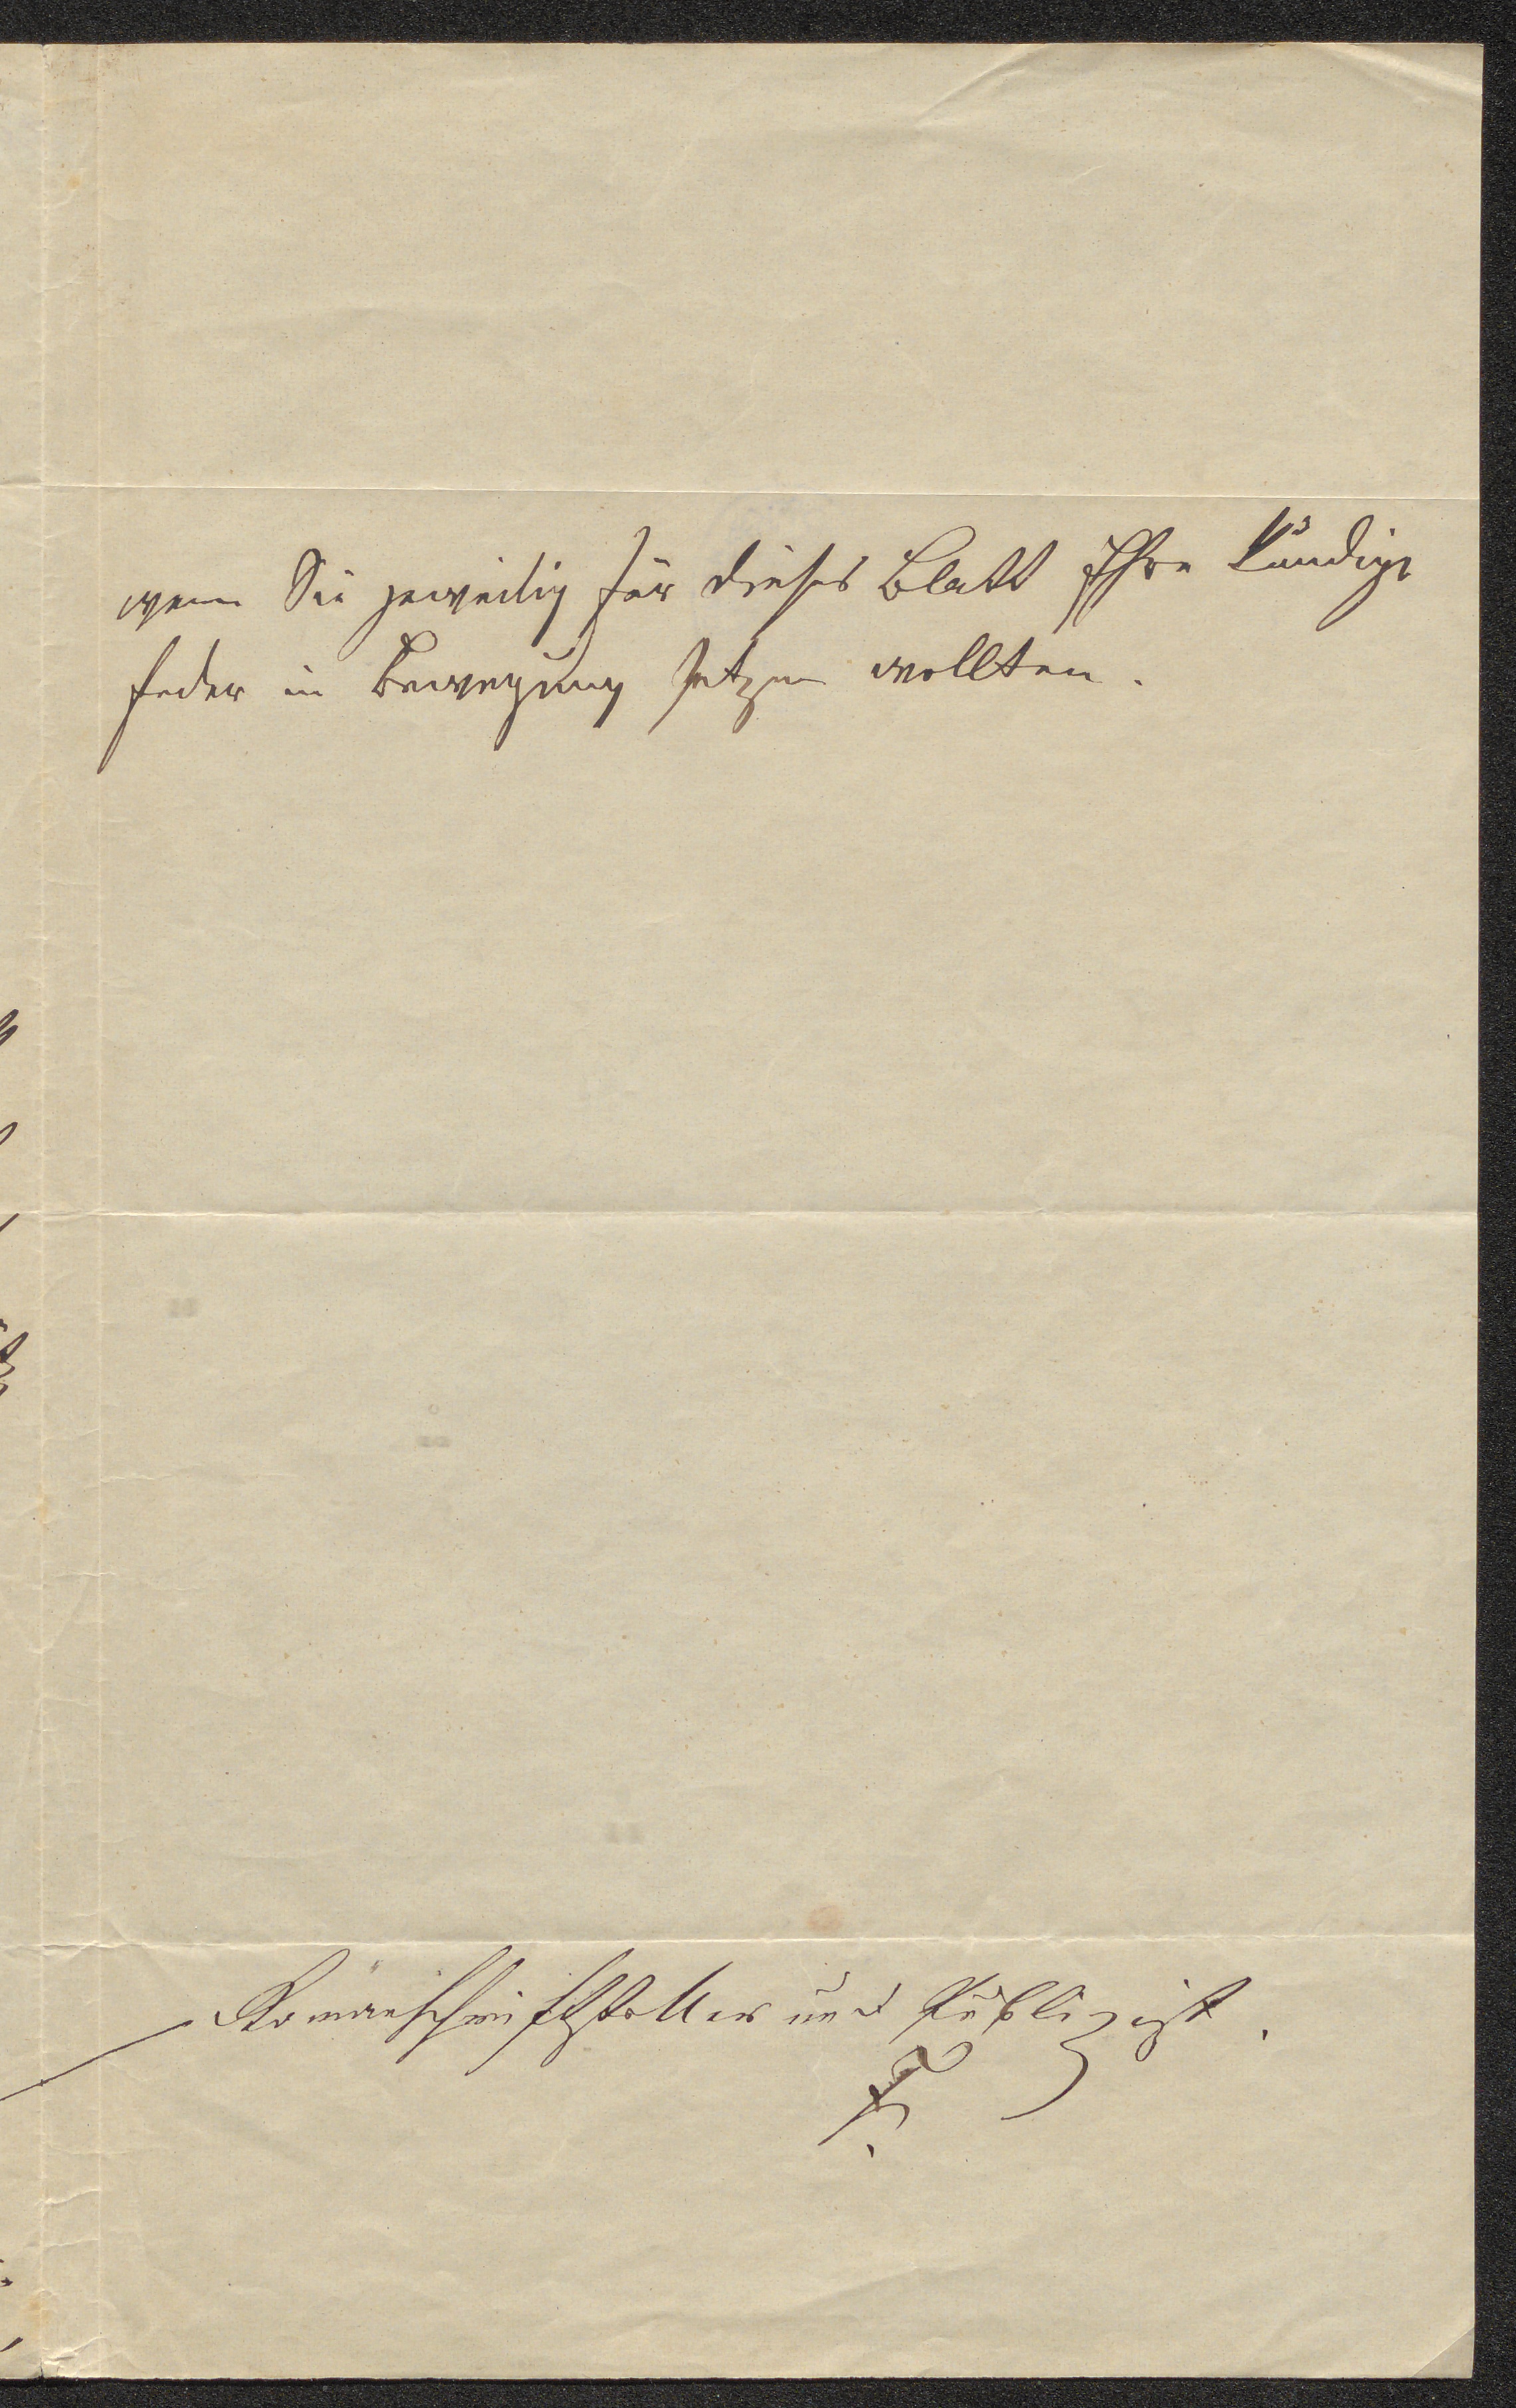 wenn Sie jeweilig für dieses Blatt Ihre kundige
Feder in Bewegung setzen wollten.
Romanschriftsteller und Publizist.